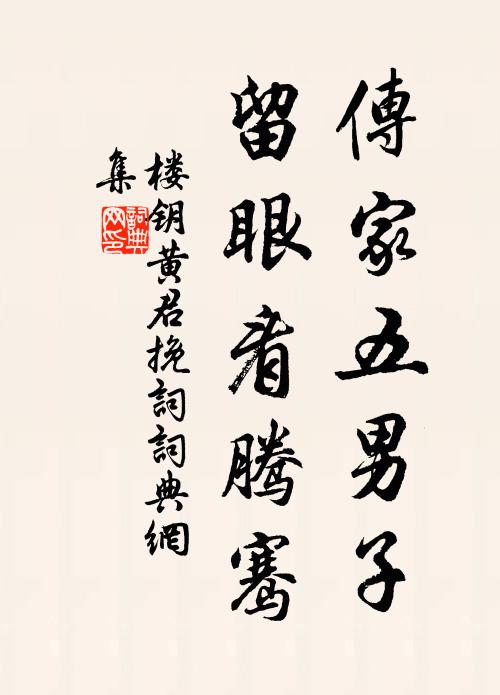 傳家五男子
留眼看腾骞
楼钥黄君挽詞詞典網
集
詞典网印